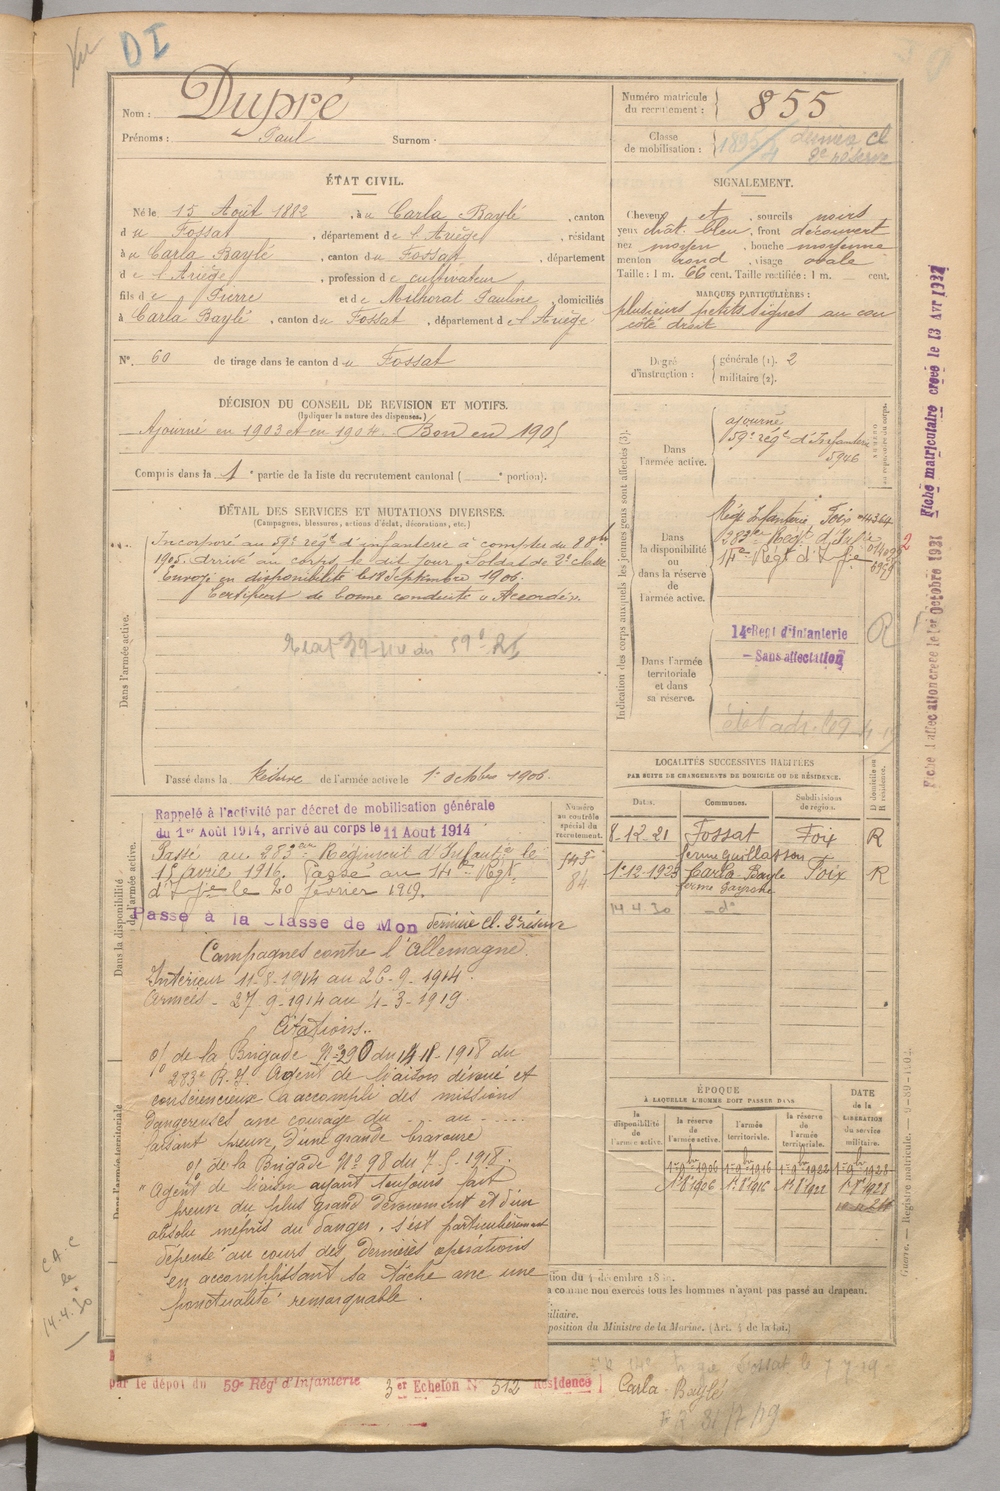 DI
Nom : Dupré
Prénoms : Paul Surnom :
Numéro matricule du recrutement : 855
Classe de mobilisation : dernière cl 2e réserve
ÉTAT CIVIL.
Né le 15 Août 1882, à u Carla Baylé, canton
du Fossat, département de l'Ariège, résidant
à u Carla Baylé, canton du Fossat, département
de l'Ariège, profession de cultivateur
fils de Pierre et de Milhorat Pauline, domiciliés
à Carla Baylé, canton du Fossat, département de l'Ariège.
N°. 60 de tirage dans le canton du Fossat
SIGNALEMENT.
Cheveux et, sourcils noirs
yeux chat. bleu, front découvert
nez moyen, bouche moyenne
menton rond, visage ovale
Taille : 1 m. 66 cent. Taille rectifiée : 1 m. cent.
MARQUES PARTICULIÈRES :
plusieurs petits signes au cou
côté droit
Degré d'instruction : générale (1). 2
militaire (2).
DÉCISION DU CONSEIL DE REVISION ET MOTIFS.
(Indiquer la nature des dispenses.)
Ajourné en 1903 et en 1904. Bon en 1905
Compris dans la 1e partie de la liste du recrutement cantonal ( e portion).
DÉTAIL DES SERVICES ET MUTATIONS DIVERSES.
(Campagnes, blessures, actions d'éclat, décorations, etc.)
Dans l'armée active.
Incorporé au 59e régt d'infanterie à compter du 8 8bre
1905. Arrivé au corps le dit jour, Soldat de 2e classe
Envoyé en disponibilité le 18 Septembre 1906.
Certificat de bonne conduite « Accordé ».
Passé dans la Réserve de l'armée active le 1er octobre 1906.
Indication des corps auxquels les jeunes gens sont affectés (3).
Dans l'armée active.
ajourné
59e régt d'Infanterie
5946
Dans la disponibilité ou dans la réserve de l'armée active.
Régt Infanterie, Foix 14364
283e Regt d'Infie
14e Regt d'Infie
Dans l'armée territoriale et dans sa réserve.
14e Regt d'Infanterie
– Sans affectation
R
Fiche matriculaire créée le 13 Avr 1932
Fiche d'affectation créée le 1er Octobre 1931
Dans la disponibilité de l'armée active.
Rappelé à l'activité par décret de mobilisation générale
du 1er Août 1914, arrivé au corps le 11 Aout 1914
Passé au 283eme Régiment d'Infantie le
15 avril 1916. Passé au 14e Régt
d'Infie le 20 février 1919.
Passé à la Classe de Mon dernière cl. 2e réserve
Numéro au contrôle spécial du recrutement.
84
LOCALITÉS SUCCESSIVES HABITÉES
PAR SUITE DE CHANGEMENTS DE DOMICILE OU DE RÉSIDENCE.
Dates. Communes. Subdivisions de région. D domicile ou R résidence.
8-12-21 Fossat Foix R
ferme Guillasson
1-12-1925 Carla-Bayle Foix R
ferme
14 4 30 – do
Campagnes contre l'Allemagne.
Intérieur 11-8-1914 au 26-9-1914.
Armées – 27-9-1914 au 4-3-1919
Citations.
o/ de la Brigade No 290 du 14 11-1918 du
283e R.I. Agent de liaison dévoué et
consciencieux a accompli des missions
dangereuses avec courage du ... au ....
faisant preuve d'une grande bravoure
o/ de la Brigade No 98 du 7-5-1918.
"Agent de liaison ayant toujours fait
preuve du plus grand dévouement et d'un
absolu mépris du danger, s'est particulièrement
dépensé au cours des dernières opérations
en accomplissant sa tâche avec une
ponctualité remarquable.
ÉPOQUE
À LAQUELLE L'HOMME DOIT PASSER DANS
la disponibilité de l'armée active. la réserve de l'armée active. l'armée territoriale. la réserve de l'armée territoriale.
DATE de la LIBÉRATION du service militaire.
1er 9bre 1906 1er 9bre 1916 1er 9bre 1922 1er 9bre 1928
1er 8e 1906 1er 8e 1916 1er 8e 1922 1er 8e 1928
Dans l'armée territoriale
C A C
le
14.4.30
Guerre. — Registre matricule.
comme non exercés tous les hommes n'ayant pas passé au drapeau.
position du Ministre de la Marine. (Art. 4 de la loi.)
par le dépôt du 59e Régt d'Infanterie 3er Echelon N° 512 Résidence Carla-Baylé